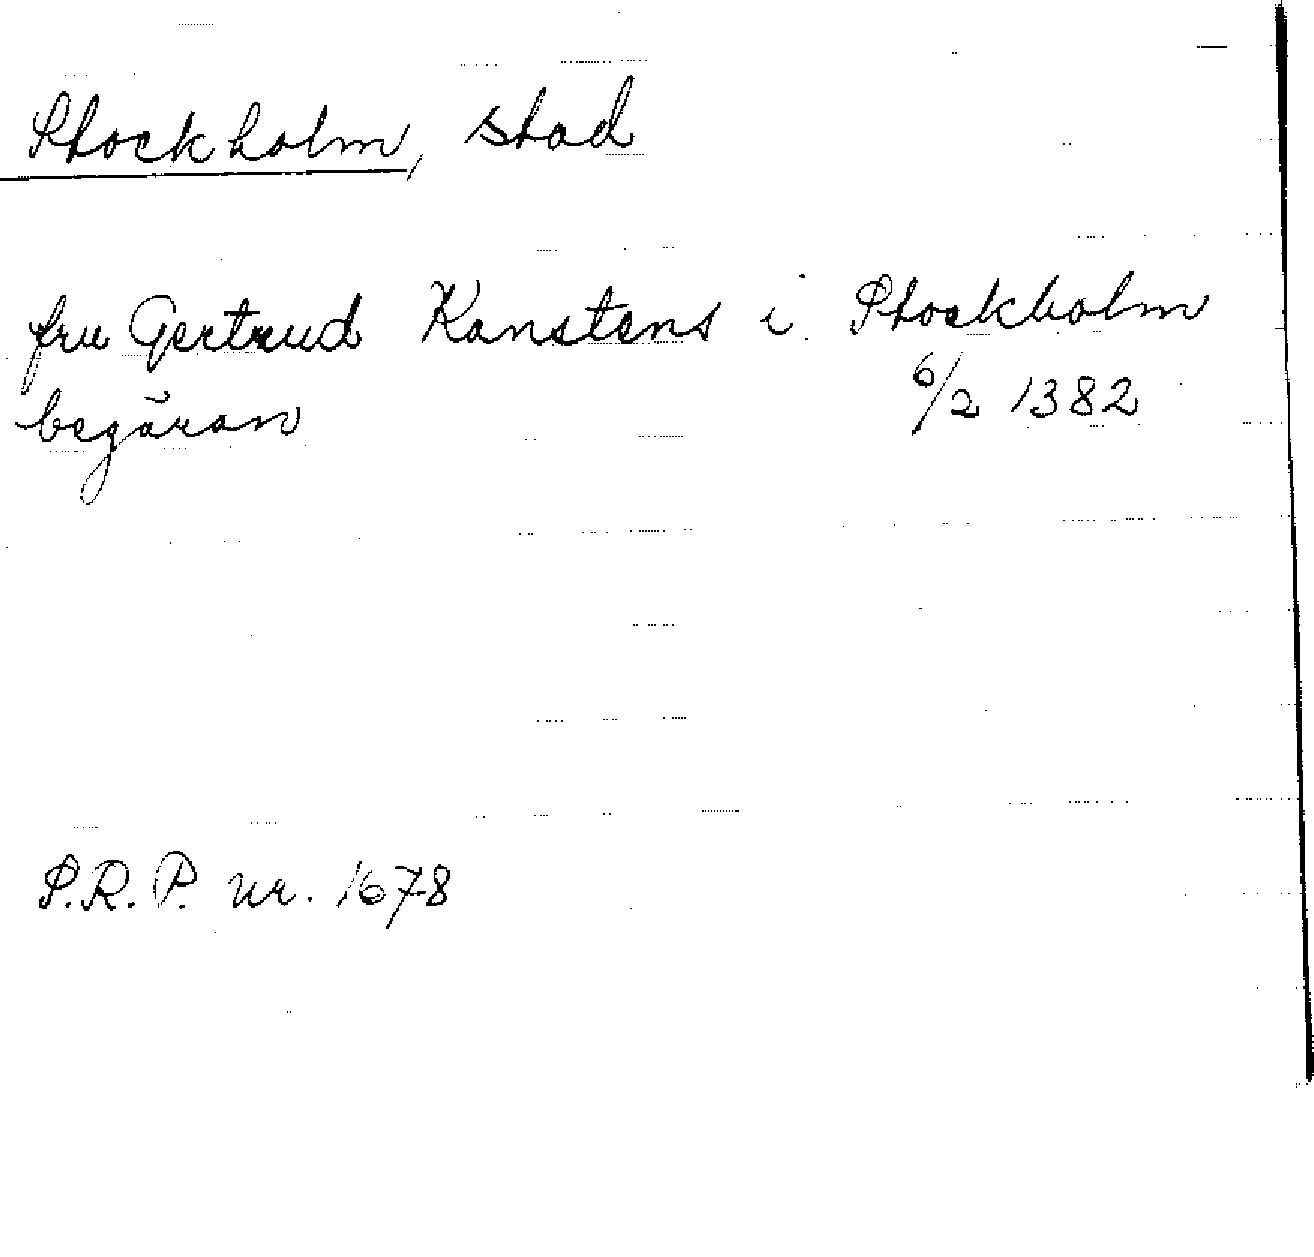 Stockholm, stad
fru Gertrud Kanstens i Stockholm
begäran 6/2 1382
S.R.P. nr. 1678